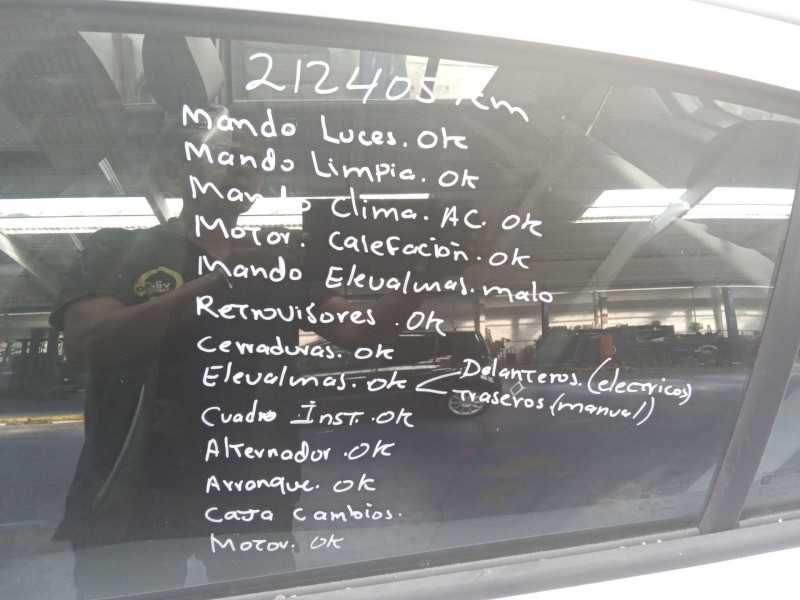 212405 km
Mando Luces. OK
Mando Limpia. OK
Mando Clima. AC. OK
Motor. Calefación. OK
Mando Elevalunas. malo
Retrovisores. OK
Cerraduras. OK
Elevalunas. OK
Delanteros. (electricos)
Traseros (manual)
Cuadro Inst. OK
Alternador. OK
Arranque. OK
Caja Cambios.
Motor. OK